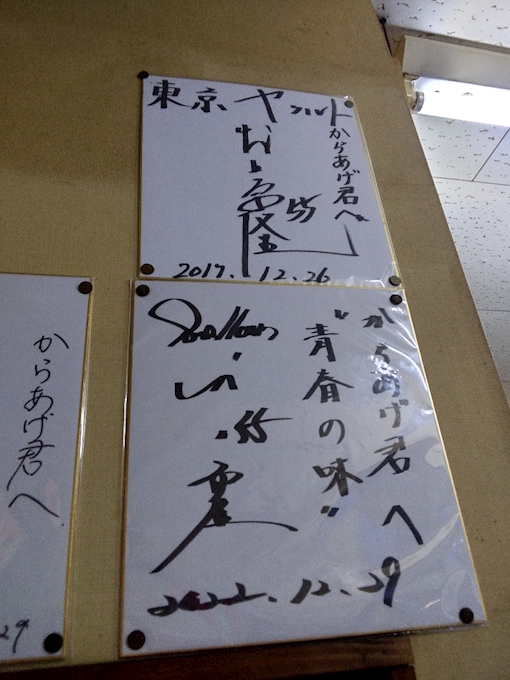 東京ヤクルト
からあげ君へ
55
2017.12.26
からあげ君へ
"青春の味"
55
2022.12.29
からあげ君へ
29